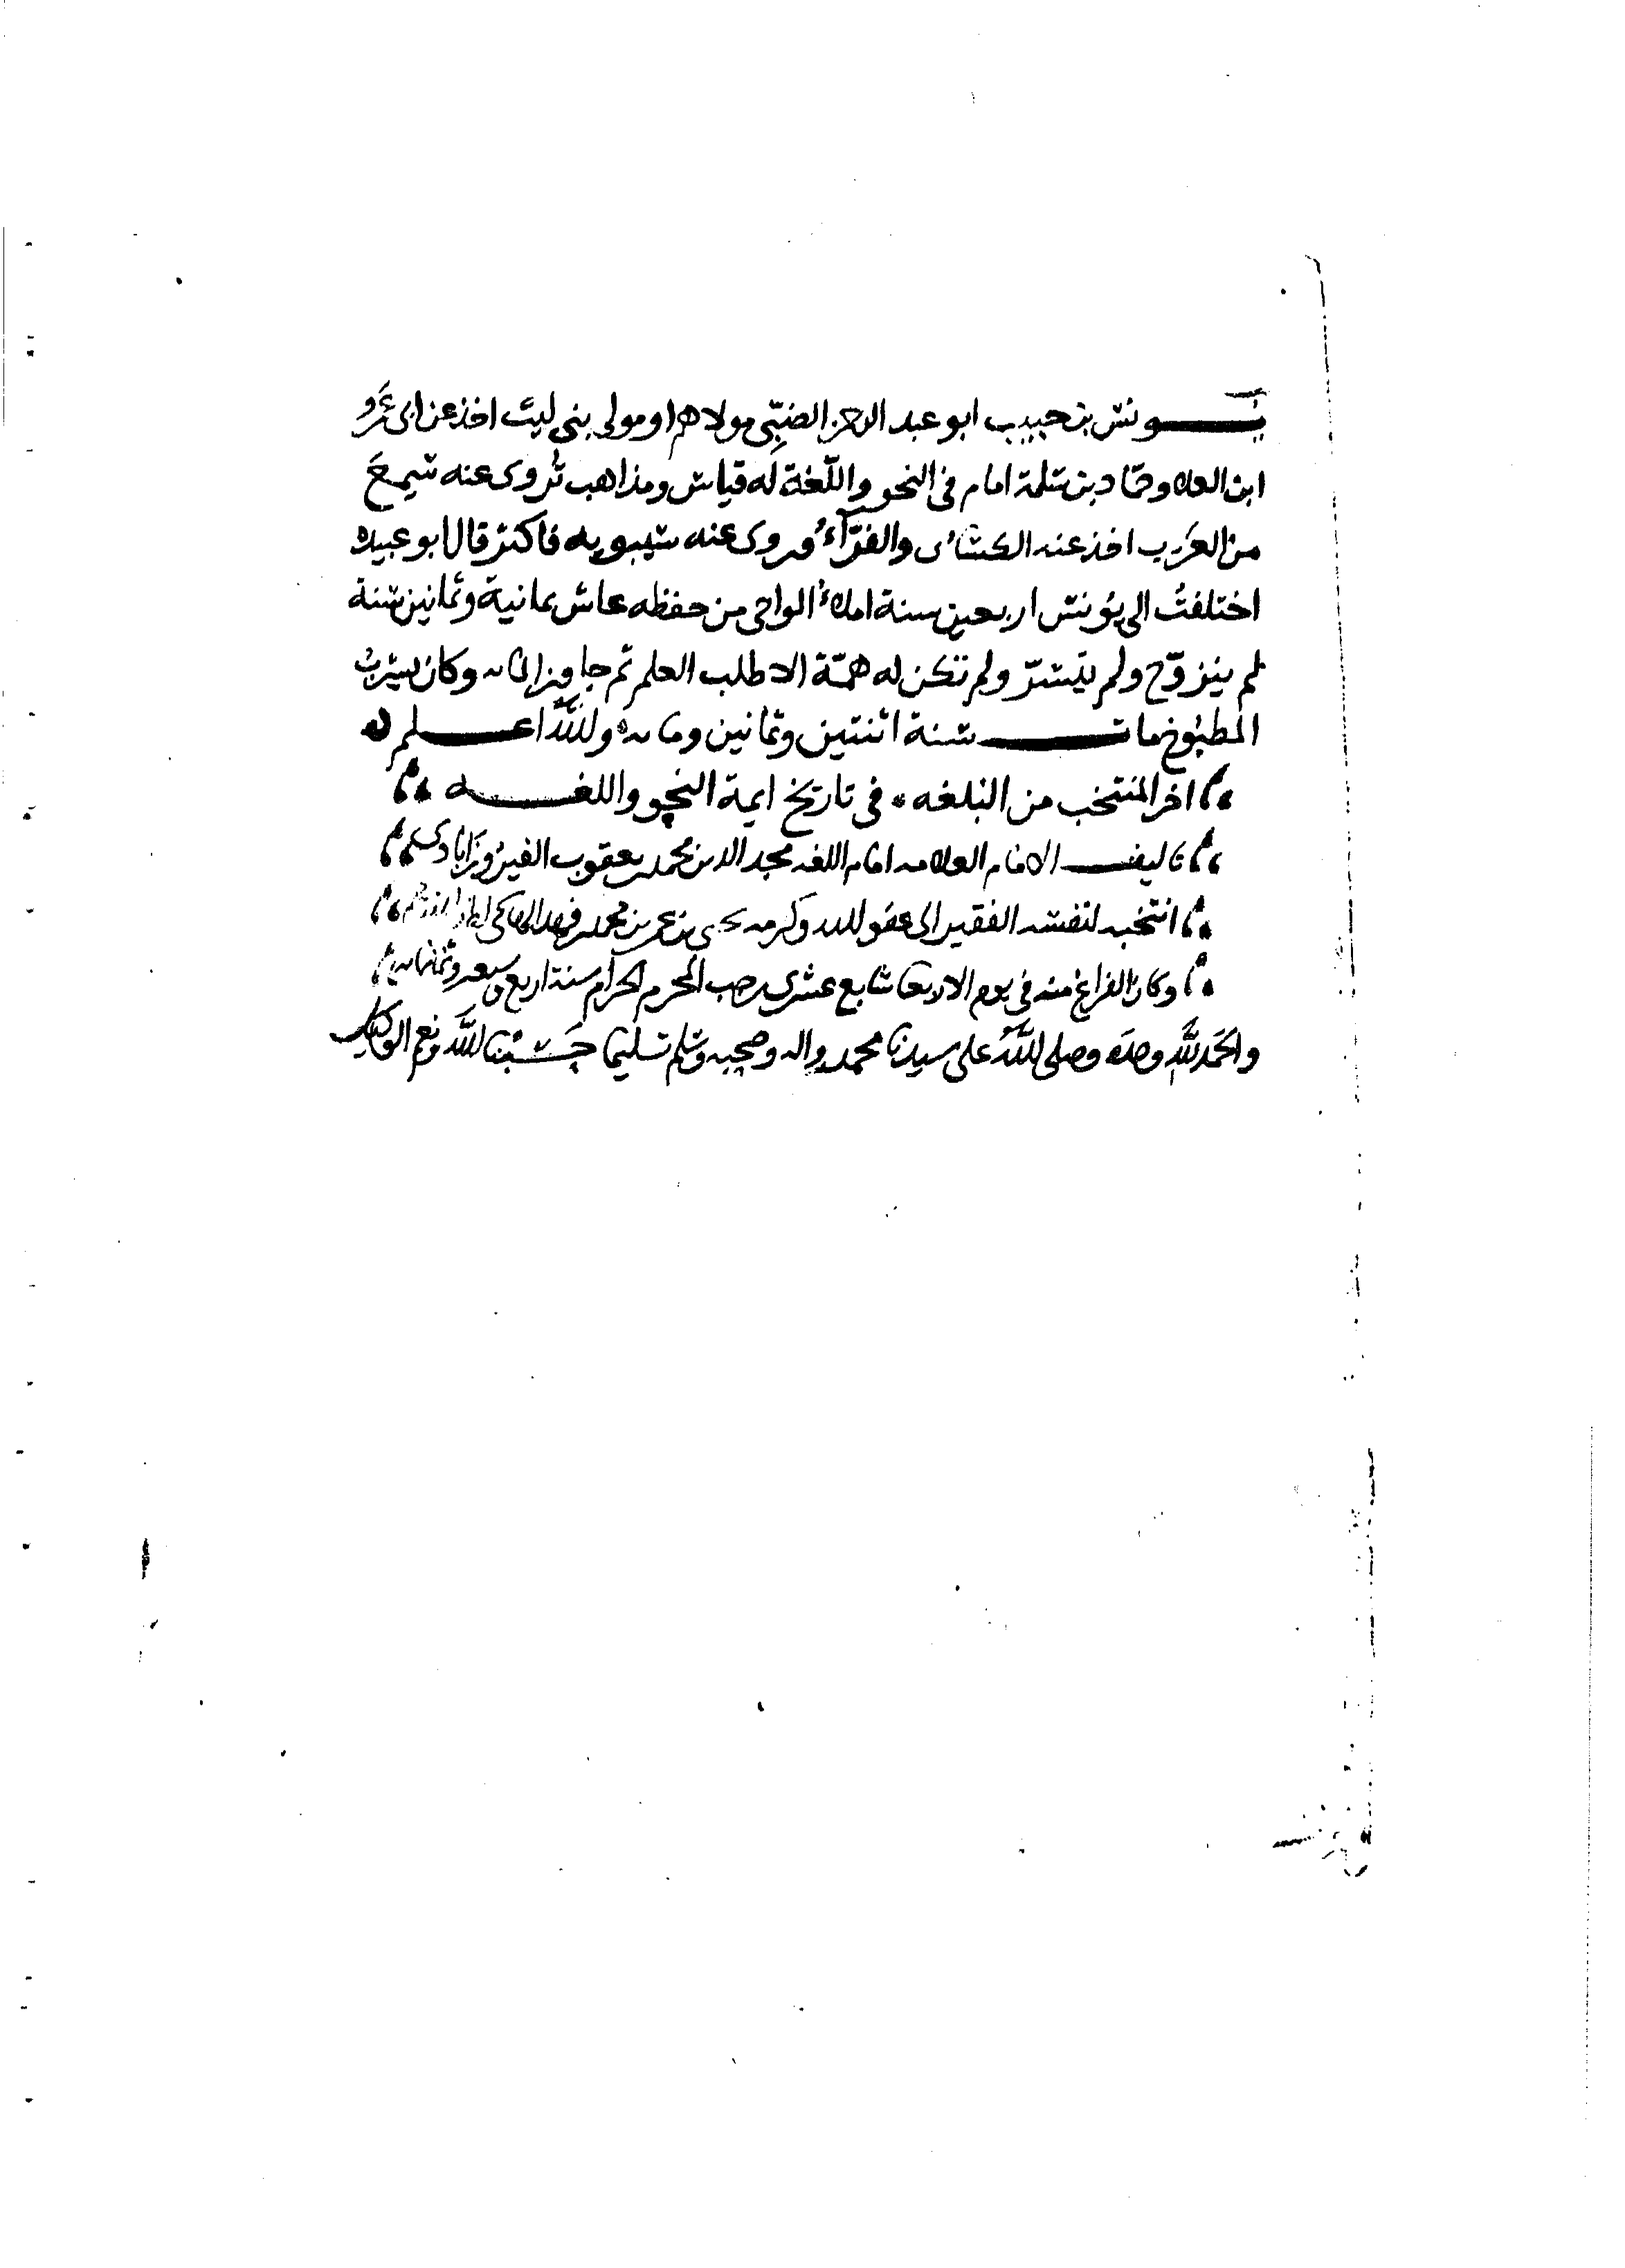 يونس بن حبيب ابو عبد الرحمن الضبّي مولاهم او مولى بني ليث اخذ عن ابى عَمرو
ابن العلاء وحمّاد بن سلمة امام في النحو واللّغة لَه قياس ومذاهب تُروى عنه سمعَ
من العرَب اخذ عنه الكسائى والفرّآءُ وروى عنه سيبويه فاكثر قال ابو عبيده
اختلفتُ الى يُونس اربعين سنة املأُ الواحى من حفظه عاش ثمانية وثمانين سنة
لم يتزوّج ولم يتسَرّ ولم تكن له همّة الا طلب العلم ثم جاوز المايه وكان يشربُ
المطبُوخ مات سنة اثنتين وثمانين ومايه واللّه اعلم
اخر المنتخب من البلغه في تاريخ ايمة النحو واللغه
تاليف الامام العلامه امام اللغه مجد الدين محمد بن يعقوب الفيرُوزَابادى
انتخبه لنفسه الفقير الى عفو الله وكرمه يحيى بن عمر بن محمد بن فهد الهاشمى
وكان الفراغ منه في يوم الاربعا سابع عشرى المحرم الحرام سنة اربع وسبعين وثمانمايه
والحَمد للّه وحدَه وصلى اللّه على سيدنا محمد واله وصحبه وسلم تسليما حَسْبُنا اللّه ونعم الوكيل